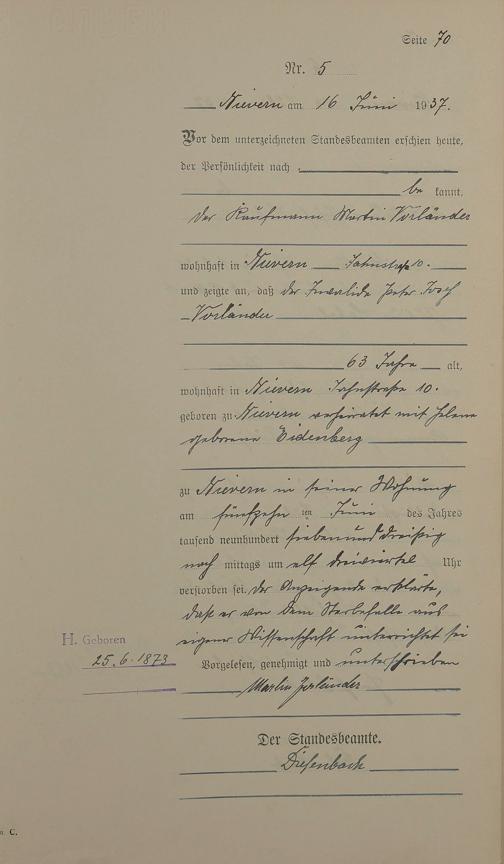 Seite 70
Nr. 5
Nievern am 16 Juni 1937.
Vor dem unterzeichneten Standesbeamten erschien heute,
der Persönlichkeit nach
be kannt,
der Kaufmann Martin Vorländer
wohnhaft in Nievern Jahnstraße 10.
und zeigte an, daß der Invalide Peter Josef
Vorländer
63 Jahre alt,
wohnhaft in Nievern Jahnstraße 10.
geboren zu Nievern verheiratet mit Helene
geborene Eidenberg
zu Nievern in seiner Wohnung
am fünfzehn ten Juni des Jahres
tausend neunhundert siebenunddreißig
nach mittags um elf dreiviertel Uhr
verstorben sei. Der Anzeigende erklärte,
daß er von dem Sterbefalle aus
eigener Wissenschaft unterrichtet sei
H. Geboren
25.6.1873
Vorgelesen, genehmigt und unterschrieben
Martin Vorländer
Der Standesbeamte.
Diefenbach
C.